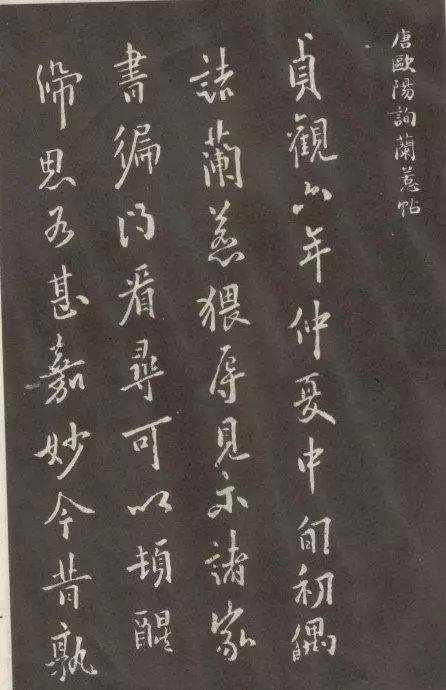 唐歐陽詢蘭惹帖
貞觀六年仲夏中旬初偶
詣蘭惹猥辱見示諸家
書徧得看尋可以頓醒
歸思為甚嘉妙今昔孰